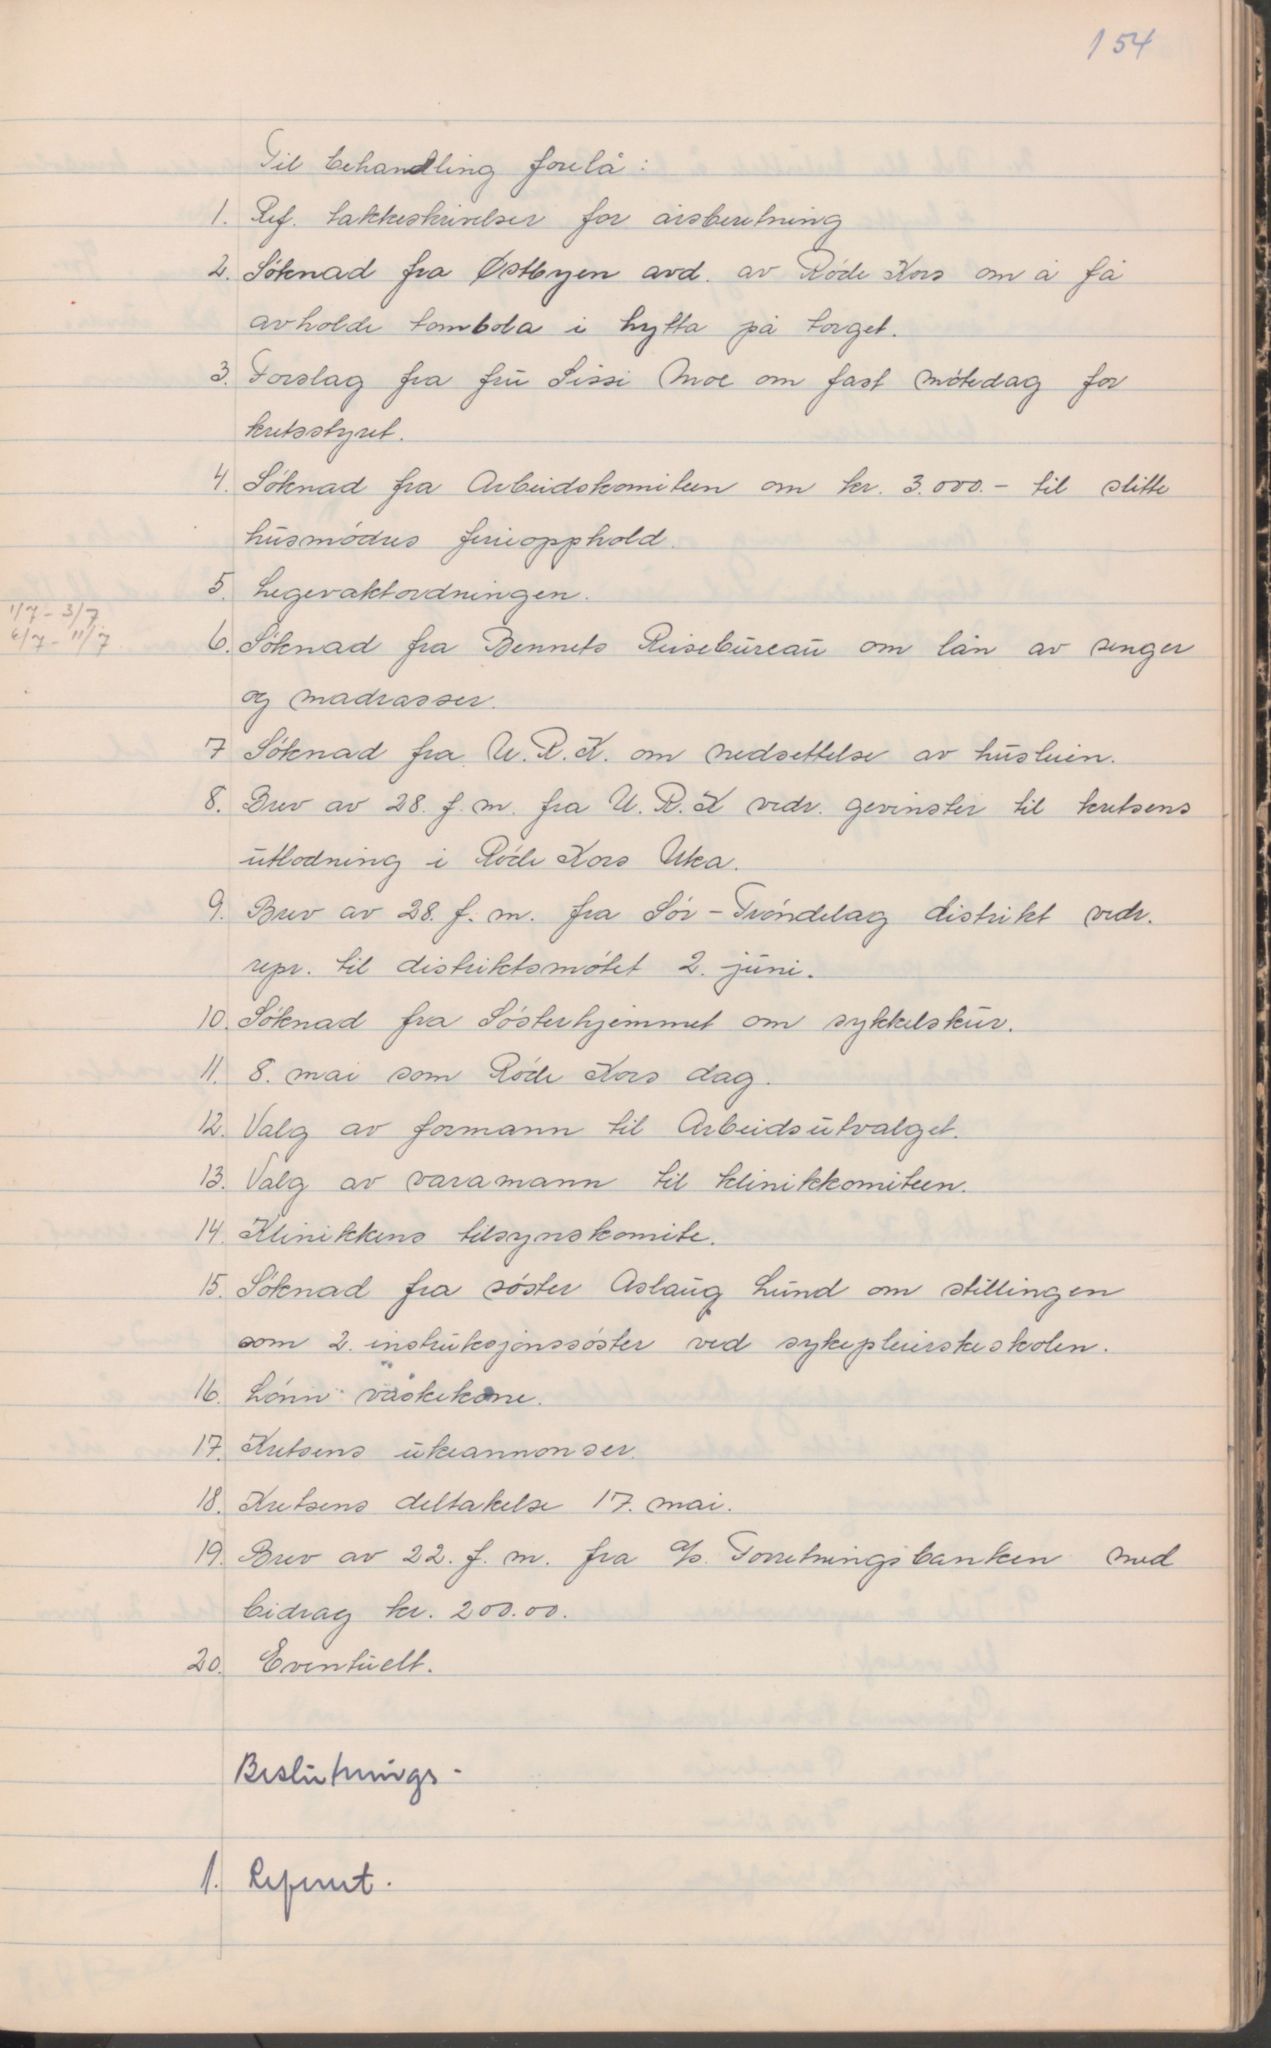 154
Til behandling forelå:
1. Ref. takkeskrivelser for årsberetning
2. Søknad fra Østbyen avd. av Røde Kors om å få
avholde tombola i hytta på torget.
3. Forslag fra fru Sissi Moe om fast møtedag for
kretsstyret.
4. Søknad fra Arbeidskomiteen om kr. 3.000.- til slitte
husmødres ferieopphold.
5. Legevaktordningen.
1/7 - 3/7
6/7 - 11/7
6. Søknad fra Bennets Reisebureau om lån av senger
og madrasser.
7 Søknad fra U.R.K. om nedsettelse av husleien.
8. Brev av 28. f.m. fra U.R.K vedr. gevinster til kretsens
utlodning i Røde Kors Uka.
9. Brev av 28. f.m. fra Sør-Trøndelag distrikt vedr.
repr. til distriktsmøtet 2. juni.
10. Søknad fra Søsterhjemmet om sykkelskur.
11. 8. mai som Røde Kors dag.
12. Valg av formann til Arbeidsutvalget.
13. Valg av varamann til klinikkomiteen.
14. Klinikkens tilsynskomite.
15. Søknad fra søster Aslaug Lund om stillingen
som 2. instruksjonssøster ved sykepleierskeskolen.
16. Lønn vaskekone.
17. Kretsens ukeannonser.
18. Kretsens deltakelse 17. mai.
19. Brev av 22. f.m. fra a/s. Forretningsbanken med
bidrag kr. 200.00.
20. Eventuelt.
Beslutnings-
1. Referert.